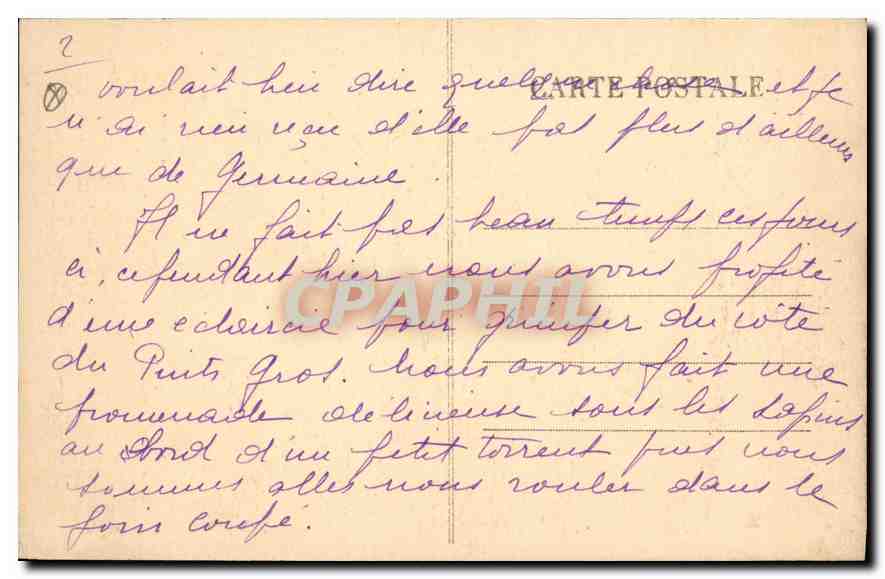 2
voulait bien dire quelque chose et je
CARTE POSTALE
n'ai rien reçu d'elle pas plus d'ailleurs
que de Germaine.
Il ne fait pas beau temps ces jours
ci, cependant hier nous avons profité
CPAPHIL
d'une eclaircie pour grimper du côté
du Puits Gros. Nous avons fait une
promenade délicieuse sous les sapins
au bord d'un petit torrent puis nous
sommes allés nous rouler dans le
foin coupé.